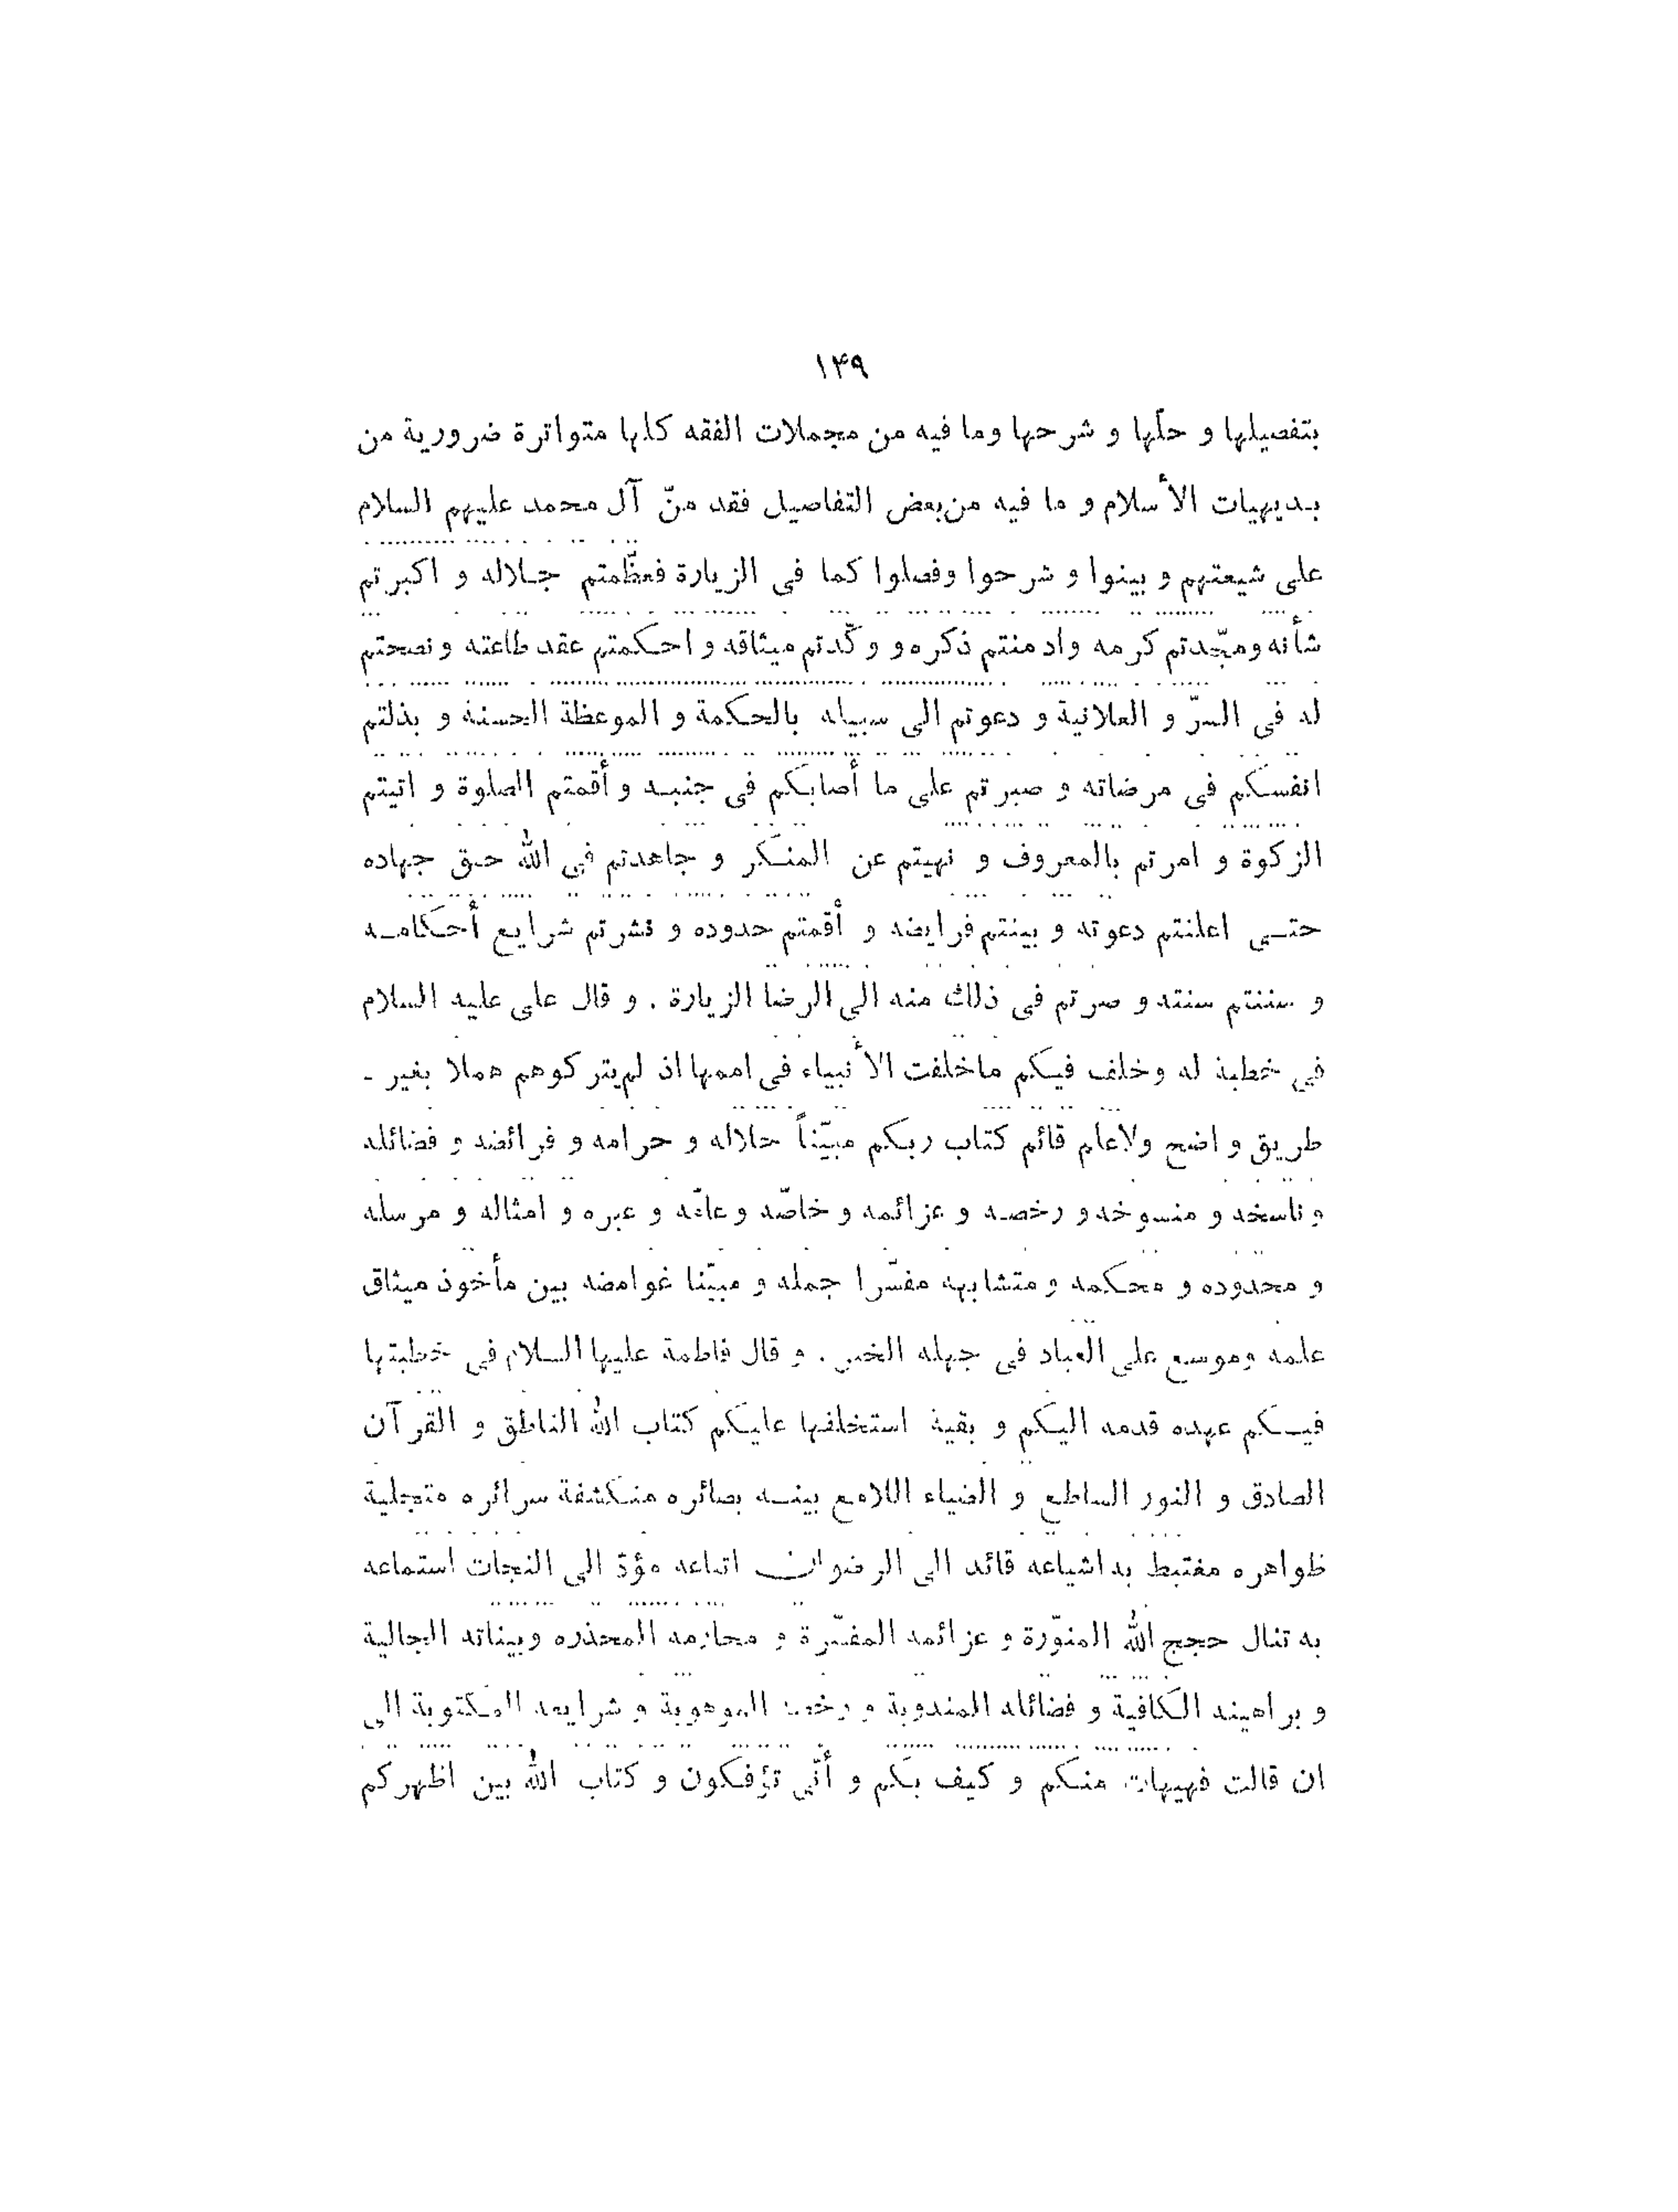 ۱۴۹
بتفصيلها و حلّها و شرحها وما فيه من مجملات الفقه كلها متواترة ضرورية من
بديهيات الأسلام و ما فيه من بعض التفاصيل فقد منّ آل محمد عليهم السلام
على شيعتهم و بينوا و شرحوا وفصلوا كما فى الزيارة فعظّمتم جلاله و اكبرتم
شأنه ومجّدتم كرمه وادمنتم ذكره و و كّدتم ميثاقه و احكمتم عقد طاعته و نصحتم
له فى السرّ و العلانية و دعوتم الى سبيله بالحكمة و الموعظة الحسنة و بذلتم
انفسكم فى مرضاته و صبرتم على ما أصابكم فى جنبه و أقمتم الصلوة و اتيتم
الزكوة و امرتم بالمعروف و نهيتم عن المنكر و جاهدتم فى الله حق جهاده
حتى اعلنتم دعوته و بينتم فرايضه و أقمتم حدوده و نشرتم شرايع أحكامه
و سننتم سنته و صرتم فى ذلك منه الى الرضا الزيارة . و قال على عليه السلام
فى خطبة له وخلف فيكم ماخلفت الأنبياء فى اممها اذ لم يتركوهم هملا بغير -
طريق واضح ولاعلم قائم كتاب ربكم مبيّناً حلاله و حرامه و فرائضه و فضائله
و ناسخه و منسوخه و رخصه و عزائمه و خاصّه و عامّه و عبره و امثاله و مرسله
و محدوده و محكمه و متشابهه مفسّرا جمله و مبيّنا غوامضه بين مأخوذ ميثاق
علمه وموسع على العباد فى جهله الخبر . و قال فاطمة عليها السلام فى خطبتها
فيكم عهده قدمه اليكم و بقية استخلفها عليكم كتاب الله الناطق و القرآن
الصادق و النور الساطع و الضياء اللامع بينه بصائره منكشفة سرائره متجلية
ظواهره مغتبط به اشياعه قائد الى الرضوان اتباعه مؤدّ الى النجات استماعه
به تنال حجج الله المنوّرة و عزائمه المفسّرة و محارمه المحذره وبيناته الجالية
و براهينه الكافية و فضائله المندوبة و رخصه الموهوبة و شرايعه المكتوبة الى
ان قالت فهيهات منكم و كيف بكم و أنّى تؤفكون و كتاب الله بين اظهركم